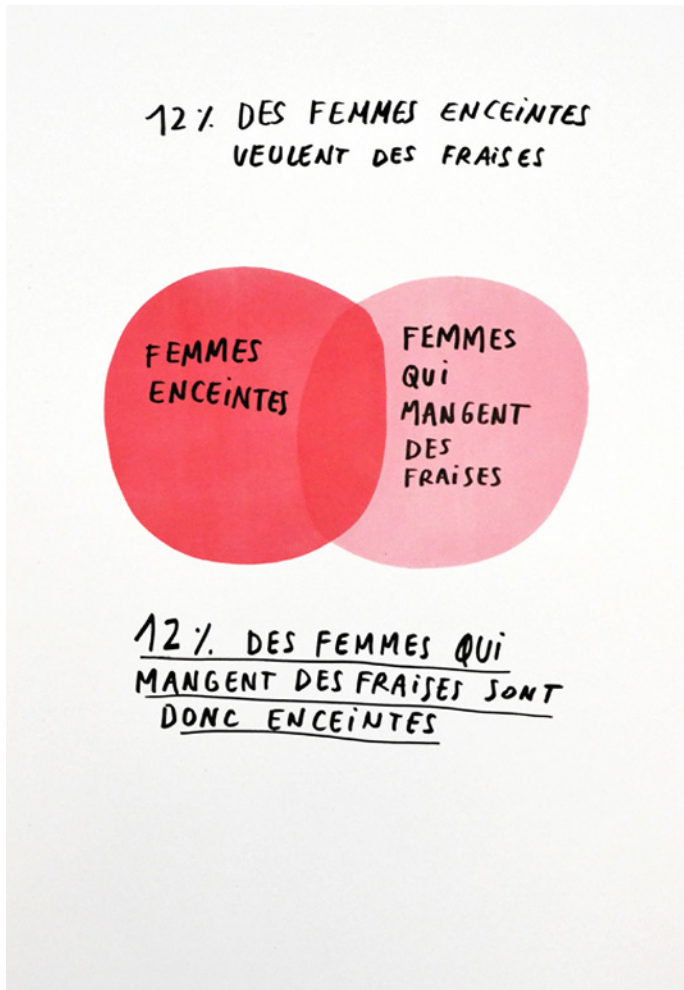 12 % DES FEMMES ENCEINTES
VEULENT DES FRAISES
FEMMES
ENCEINTES
FEMMES
QUI
MANGENT
DES
FRAISES
12 % DES FEMMES QUI
MANGENT DES FRAISES SONT
DONC ENCEINTES